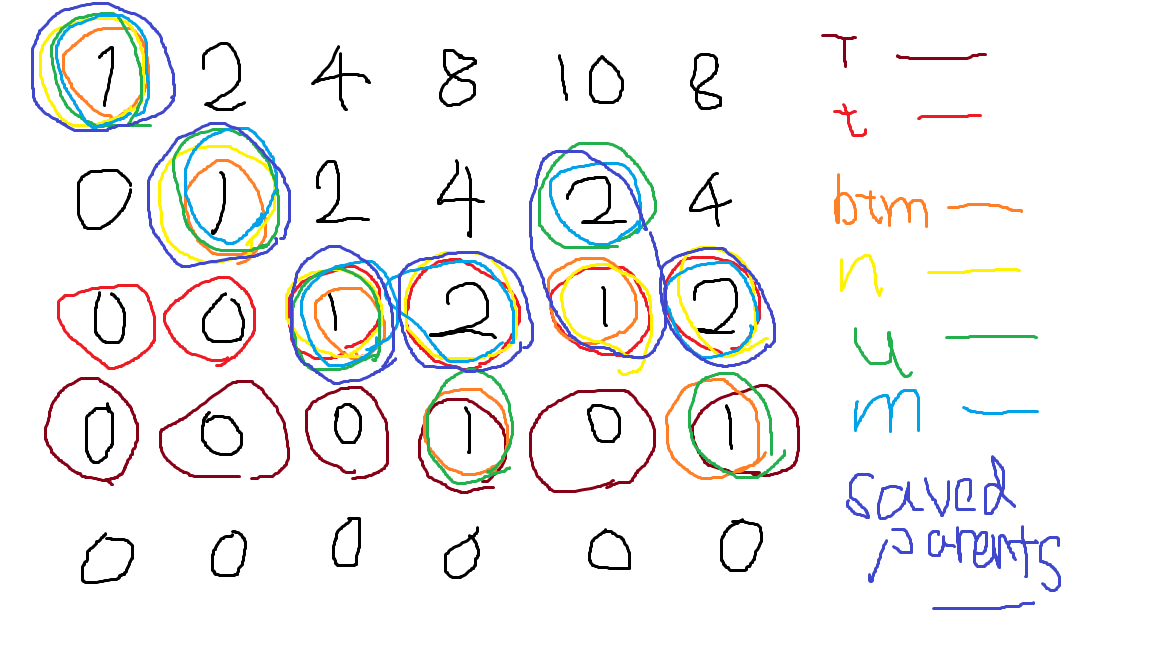 1 2 4 8 10 8
0 1 2 4 2 4
0 0 1 2 1 2
0 0 0 1 0 1
0 0 0 0 0 0
T
t
btm
n
u
m
saved
parents